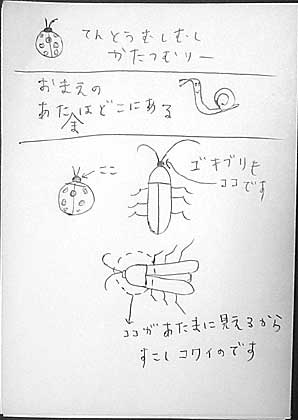 てんとうむしむし
かたつむりー
おまえの
あたまはどこにある
ここ
ゴキブリも
ココです
ココがあたまに見えるから
すこしコワイのです